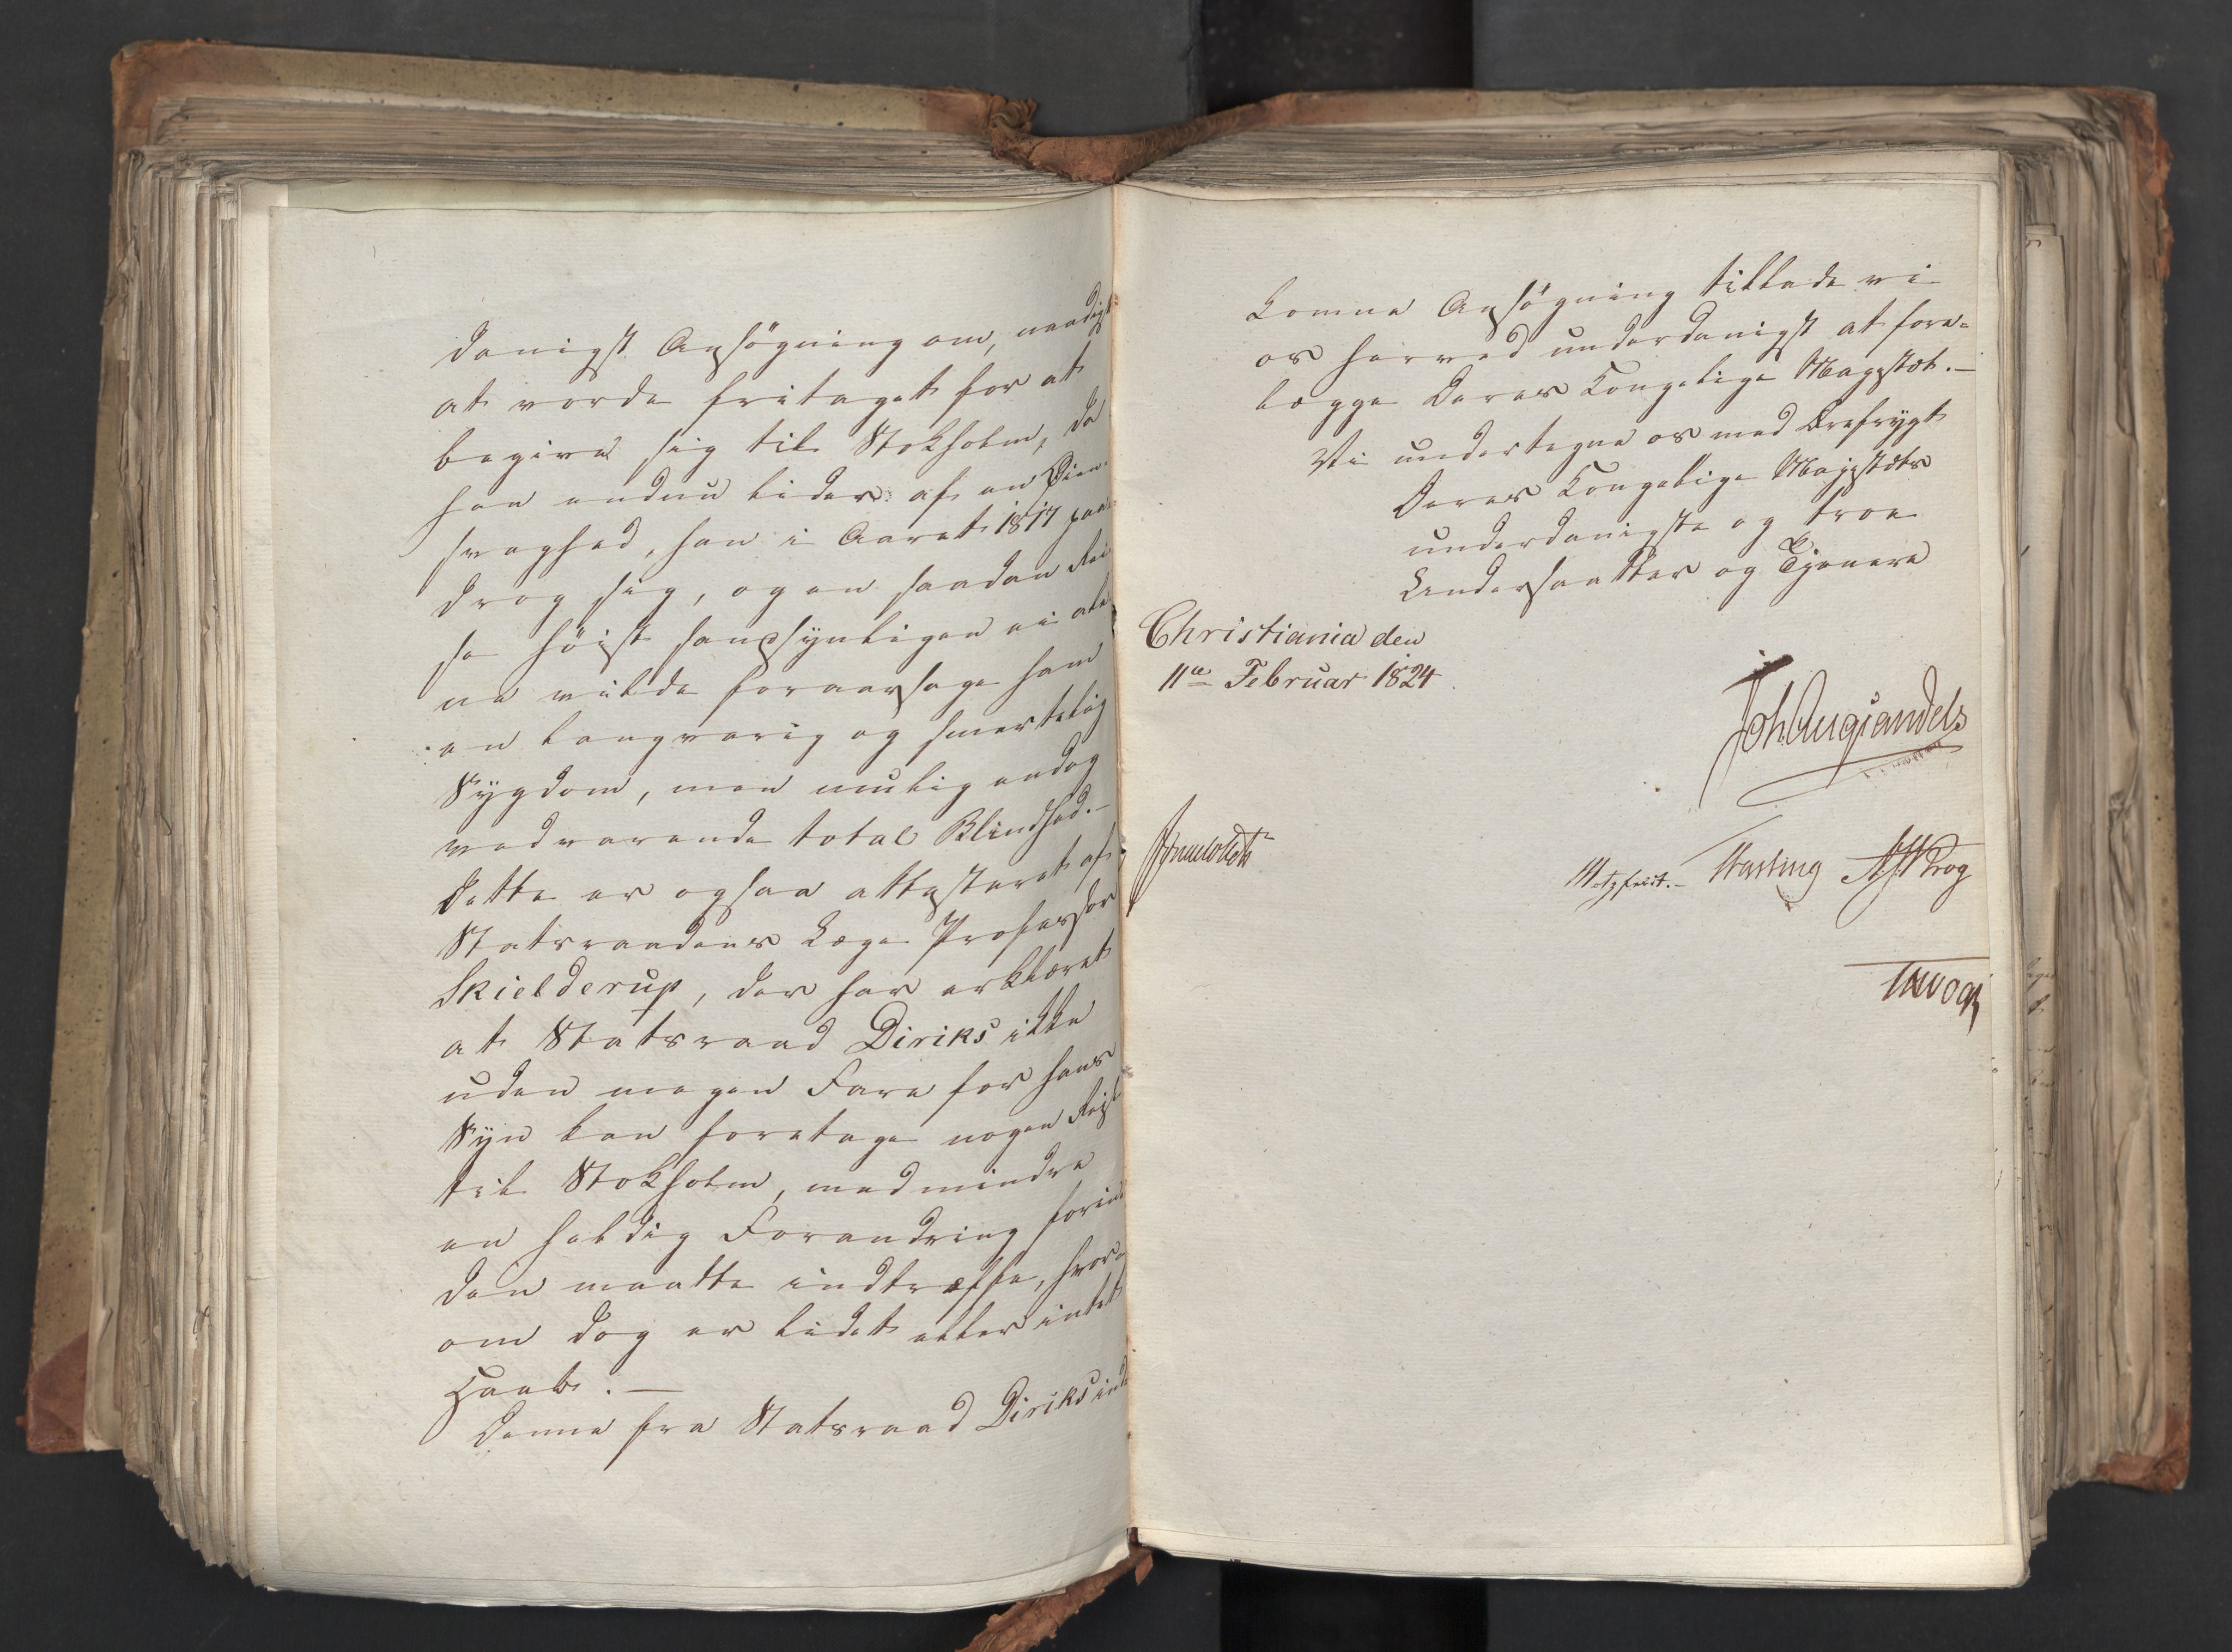 danigst Ansögning om, naadigst
at vorde fritaget for at
begive sig til Stokholm, da
han endnu lider af en Øien-
svaghed, han i Aaret 1817 paa-
drog sig, og en saadan Rei-
se höist sandsynligen ei ale-
ne vilde foraarsage ham
en langvarig og smertelig
Sygdom, men muelig endog
vedvarende total Blindhed.—
Dette er ogsaa attesteret af
Statsraadens Læge Professor
Skielderup, der har erklæret
at Statsraad Diriks ikke
uden megen Fare for hans
Syn kan foretage nogen Reise
til Stokholm, medmindre
en heldig Forandring forin-
den maatte indtræffe, hvor-
om dog er lidet eller intet
Haab.—
Denne fra Statsraad Diriks ind-
komne Ansögning tillade vi
os herved underdanigst at fore-
lægge Deres Kongelige Majestæt.—
Vi undertegne os med Ærefrygt
Deres Kongelige Majestæts
underdanigste og troe
Undersaatter og Tjenere
Christiania den
11te Februar 1824
Joh Aug Sandels
Motzfeldt.— Fasting HHKrog